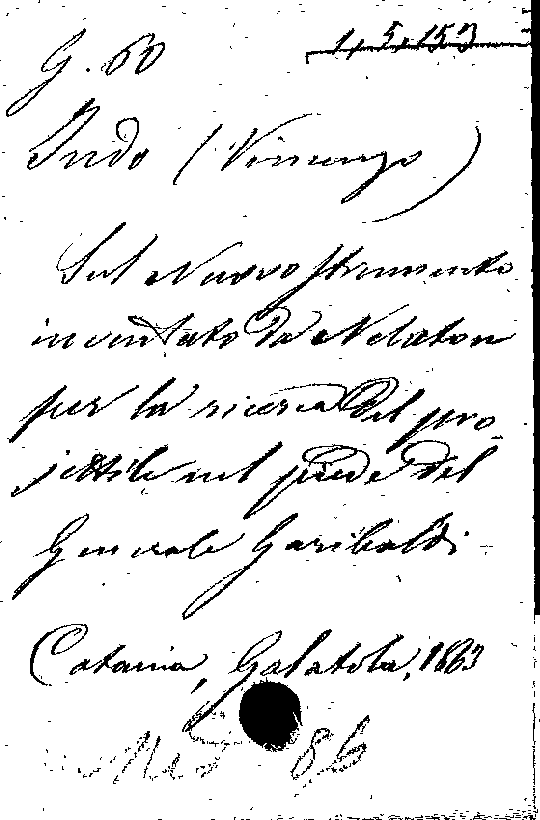 G. 60
1, 5, 153
Indo (Vincenzo)
Sul Nuovo strumento
inventato da Nelaton
per la ricerca del pro-
jettile nel piede del
Generale Garibaldi -
Catania, Galatola, 1863